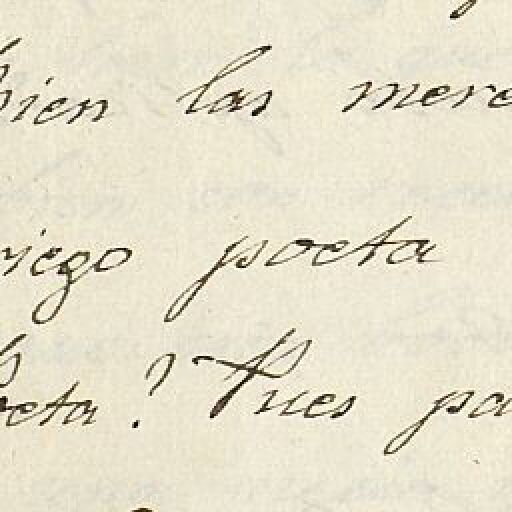 bien las mere
riego poeta
oeta? Pues pa